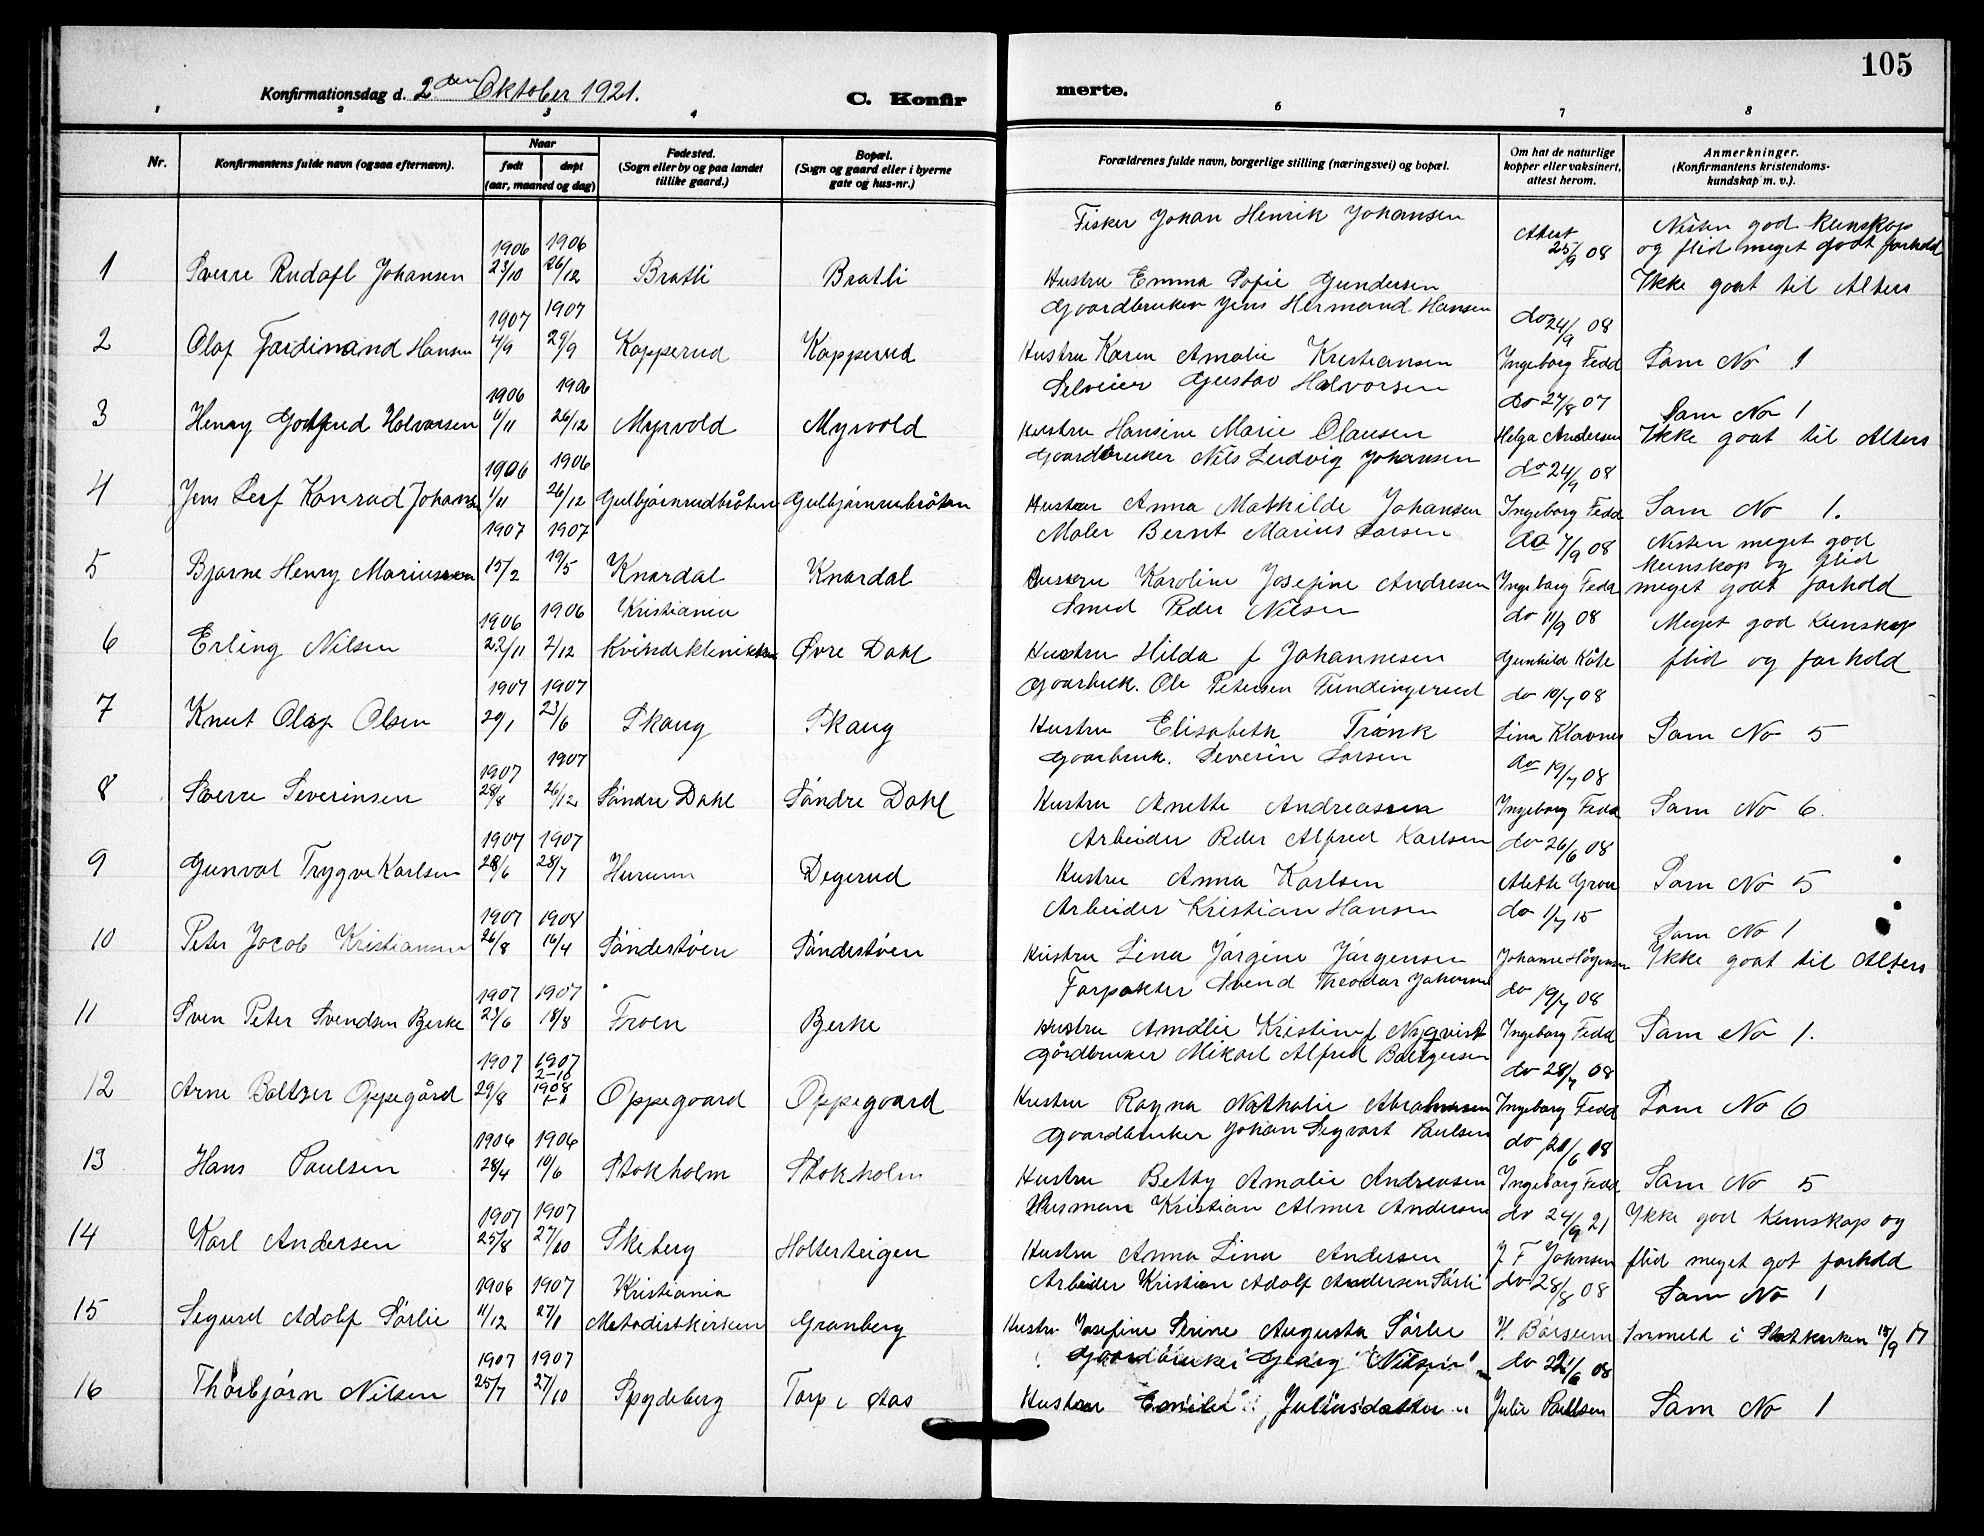 105
Konfirmationsdag d. 2den Oktober 1921.
C. Konfirmerte.
1 2 3 4 6 7 8
Nr.
Konfirmantens fulde navn (ogsaa efternavn).
Naar
født
døpt
(aar, maaned og dag)
Fødested.
(Sogn eller by og paa landet
tillike gaard.)
Bopæl.
(Sogn og gaard eller i byerne
gate og hus-nr.)
Forældrenes fulde navn, borgerlige stilling (næringsvei) og bopæl.
Om hat de naturlige
kopper eller vaksinert,
attest herom.
Anmerkninger.
(Konfirmantens kristendoms-
kundskap m. v.).
Fisker Johan Henrik Johansen Attest 25/9 08 Nesten god kunskap
1906 1906 og flid meget godt forhold
1 Sverre Rudolf Johansen 23/10 26/12 Bratli Bratli Hustru Emma Sofie Gundersen Ikke gaat til Alters
1907 1907 Gaardbruker Jens Hermand Hansen do 24/9 08
2 Olaf Ferdinand Hansen 4/9 29/9 Kopperud Kopperud Hustru Karen Amalie Kristiansen Ingeborg Fedd Som No 1
1906 1906 Selveier Gustav Halvorsen do 27/8 07 Som No 1
3 Henry Gotfred Halvorsen 6/11 26/12 Myrvold Myrvold Hustru Hansine Marie Olausen Helga Andersen Ikke gaat til Alters
1906 1906 Gaardbruker Nils Ludvig Johansen do 24/9 08
4 Jens Leif Konrad Johansen 1/11 26/12 Gulbjørnrudbråten Gulbjørnrubråten Hustru Anna Mathilde Johansen Ingeborg Fedd Som No 1.
1907 1907 Maler Bernt Marius Larsen do 7/9 08 Nesten meget god
kunskap og flid
5 Bjarne Henry Mariussen 15/2 19/5 Knardal Knardal Hustru Karoline Josefine Andresen Ingeborg Fedd meget godt forhold
1906 1906 Kristiania Smed Peder Nilsen do 11/9 08 Meget god Kunskap
6 Erling Nilsen 22/11 2/12 Kvindeklinikken Øvre Dahl Hustru Hilda f Johannesen Gunhild Kåte flid og forhold
1907 1907 Gaarbruk. Ole Petersen Fundingerud do 10/7 08
7 Knut Olaf Olsen 29/1 23/6 Skaug Skaug Hustru Elisabeth Trönk Lina Klavnes Som No 5
1907 1907 Gaarbruk. Severin Larsen do 19/7 08
8 Sverre Severinsen 28/8 26/12 Søndre Dahl Søndre Dahl Hustru Anette Andreassen Ingeborg Fedd Som No 6.
1907 1907 Arbeider Peder Alfred Karlsen do 26/6 08
9 Gunval Trygve Karlsen 28/6 28/7 Hurum Degerud Hustru Anna Karlsen Alette Grou Som No 5
1907 1908 Arbeider Kristian Hansen do 1/7 15 Som No 1
10 Peter Jacob Kristiansen 26/8 16/4 Søndestøen Søndestøen Hustru Lina Jørgine Jørgensen Johanne Ikke gaat til Alters
1907 1907 Forpakter Svend Theodor Johansen do 19/7 08
11 Sven Peter Svendsen Berke 23/6 18/8 Froen Berke Hustru Amalie Kristine f Nyqvist Ingeborg Fedd Som No 1.
1907 1907 2-10 Gårdbruker Mikael Alfred Baltzersen do 28/7 08
12 Arne Baltzer Oppegård 29/8 1908 Oppegaard Oppegaard Hustru Ragna Nathalie Abrahamsen Ingeborg Fedd Som No 6
1906 1906 Gaardbruker Johan Segvart Paulsen do 20/6 08
13 Hans Paulsen 28/4 10/6 Stokholm Stokholm Hustru Betty Amalie Andreasen Ingeborg Fedd Som No 5
1907 1907 Husman Kristian Almer Andersen do 24/9 21 Ikke god Kunskap og
14 Karl Andersen 25/8 27/10 Skiberg Holterteigen Hustru Anna Lina Andersen J. F Johnsen flid meget got forhold
1906 1907 Kristiania Arbeider Kristian Adolf Andersen Sørli do 28/8 08 Som No 1
15 Segurd Adolf Sørlie 11/12 27/1 Metodistkirken Granberg Hustru Josefine Serine Augusta Sørlie H. Børsum Inmeld i Statskirken 15/9 17
1907 1907 Gaardbruker Georg Nilsen do 22/6 08
16 Thorbjørn Nilsen 25/7 27/10 Spydeberg Torp i Aas Hustru Emilie Juliusdatter Julie Paulsen Som No 1